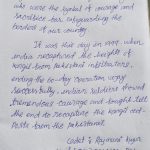 who were the symbol of courage and
sacrifice for safeguarding the
border of our country.
It was the day in
india recaptured the heights of
kargil from pakistani infiltrators,
ending the 60-day operation very
successfully. indian soldiers showed
tremendous courage and fought till
the end to recapture the kargil
Posts from the pakistanis.
Cadet